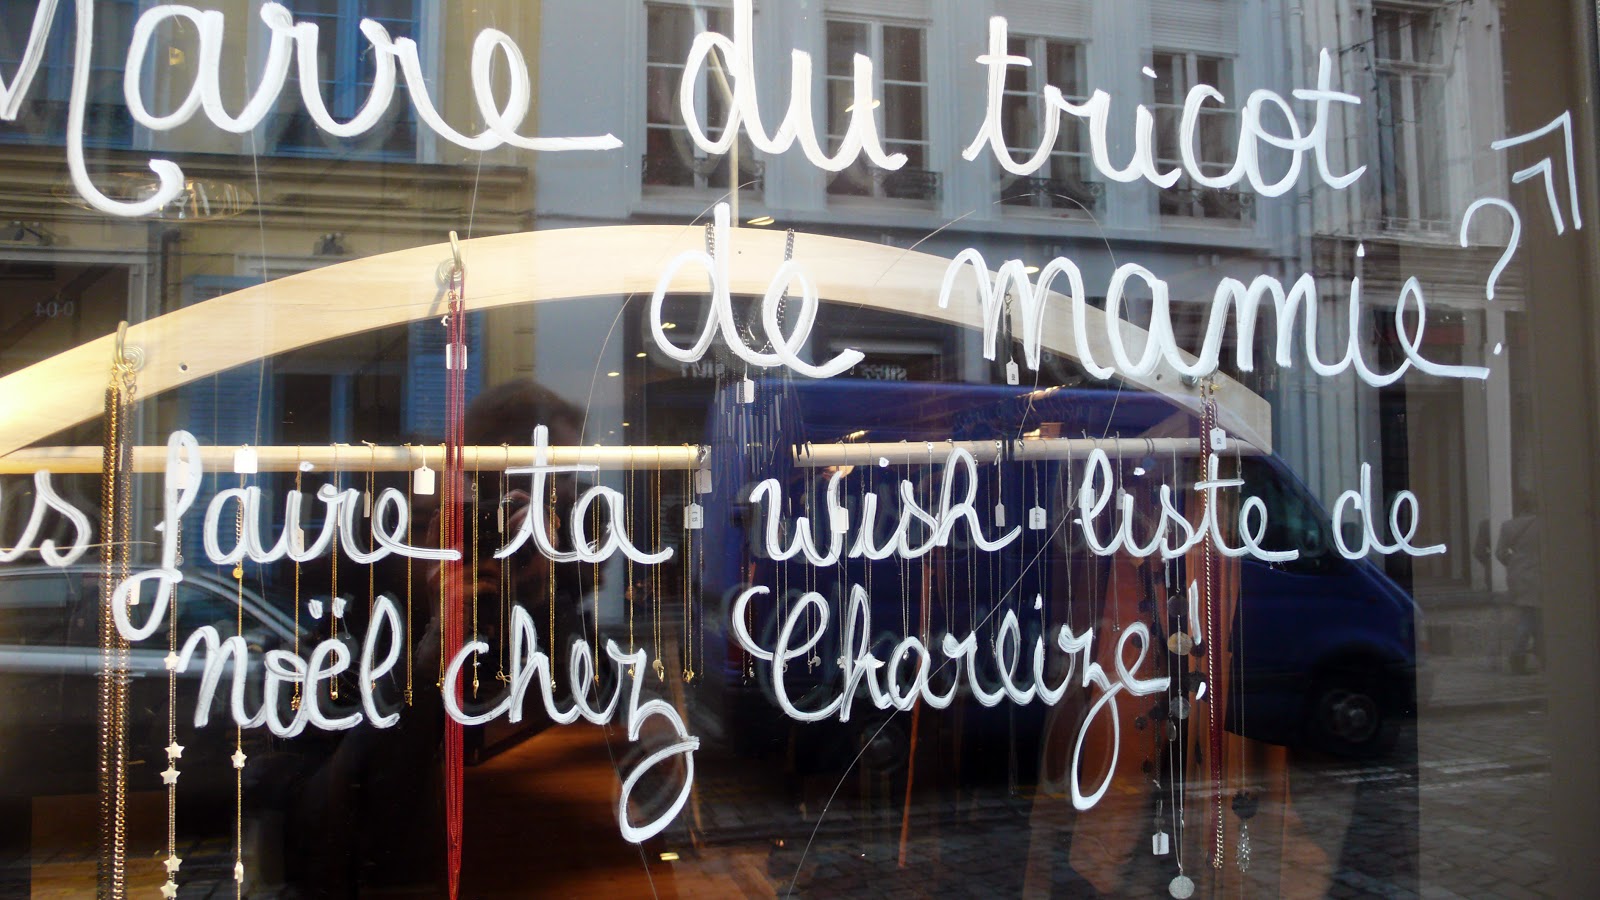 Marre du tricot
de mamie ? »
faire ta wish liste de
noël chez Charlize !